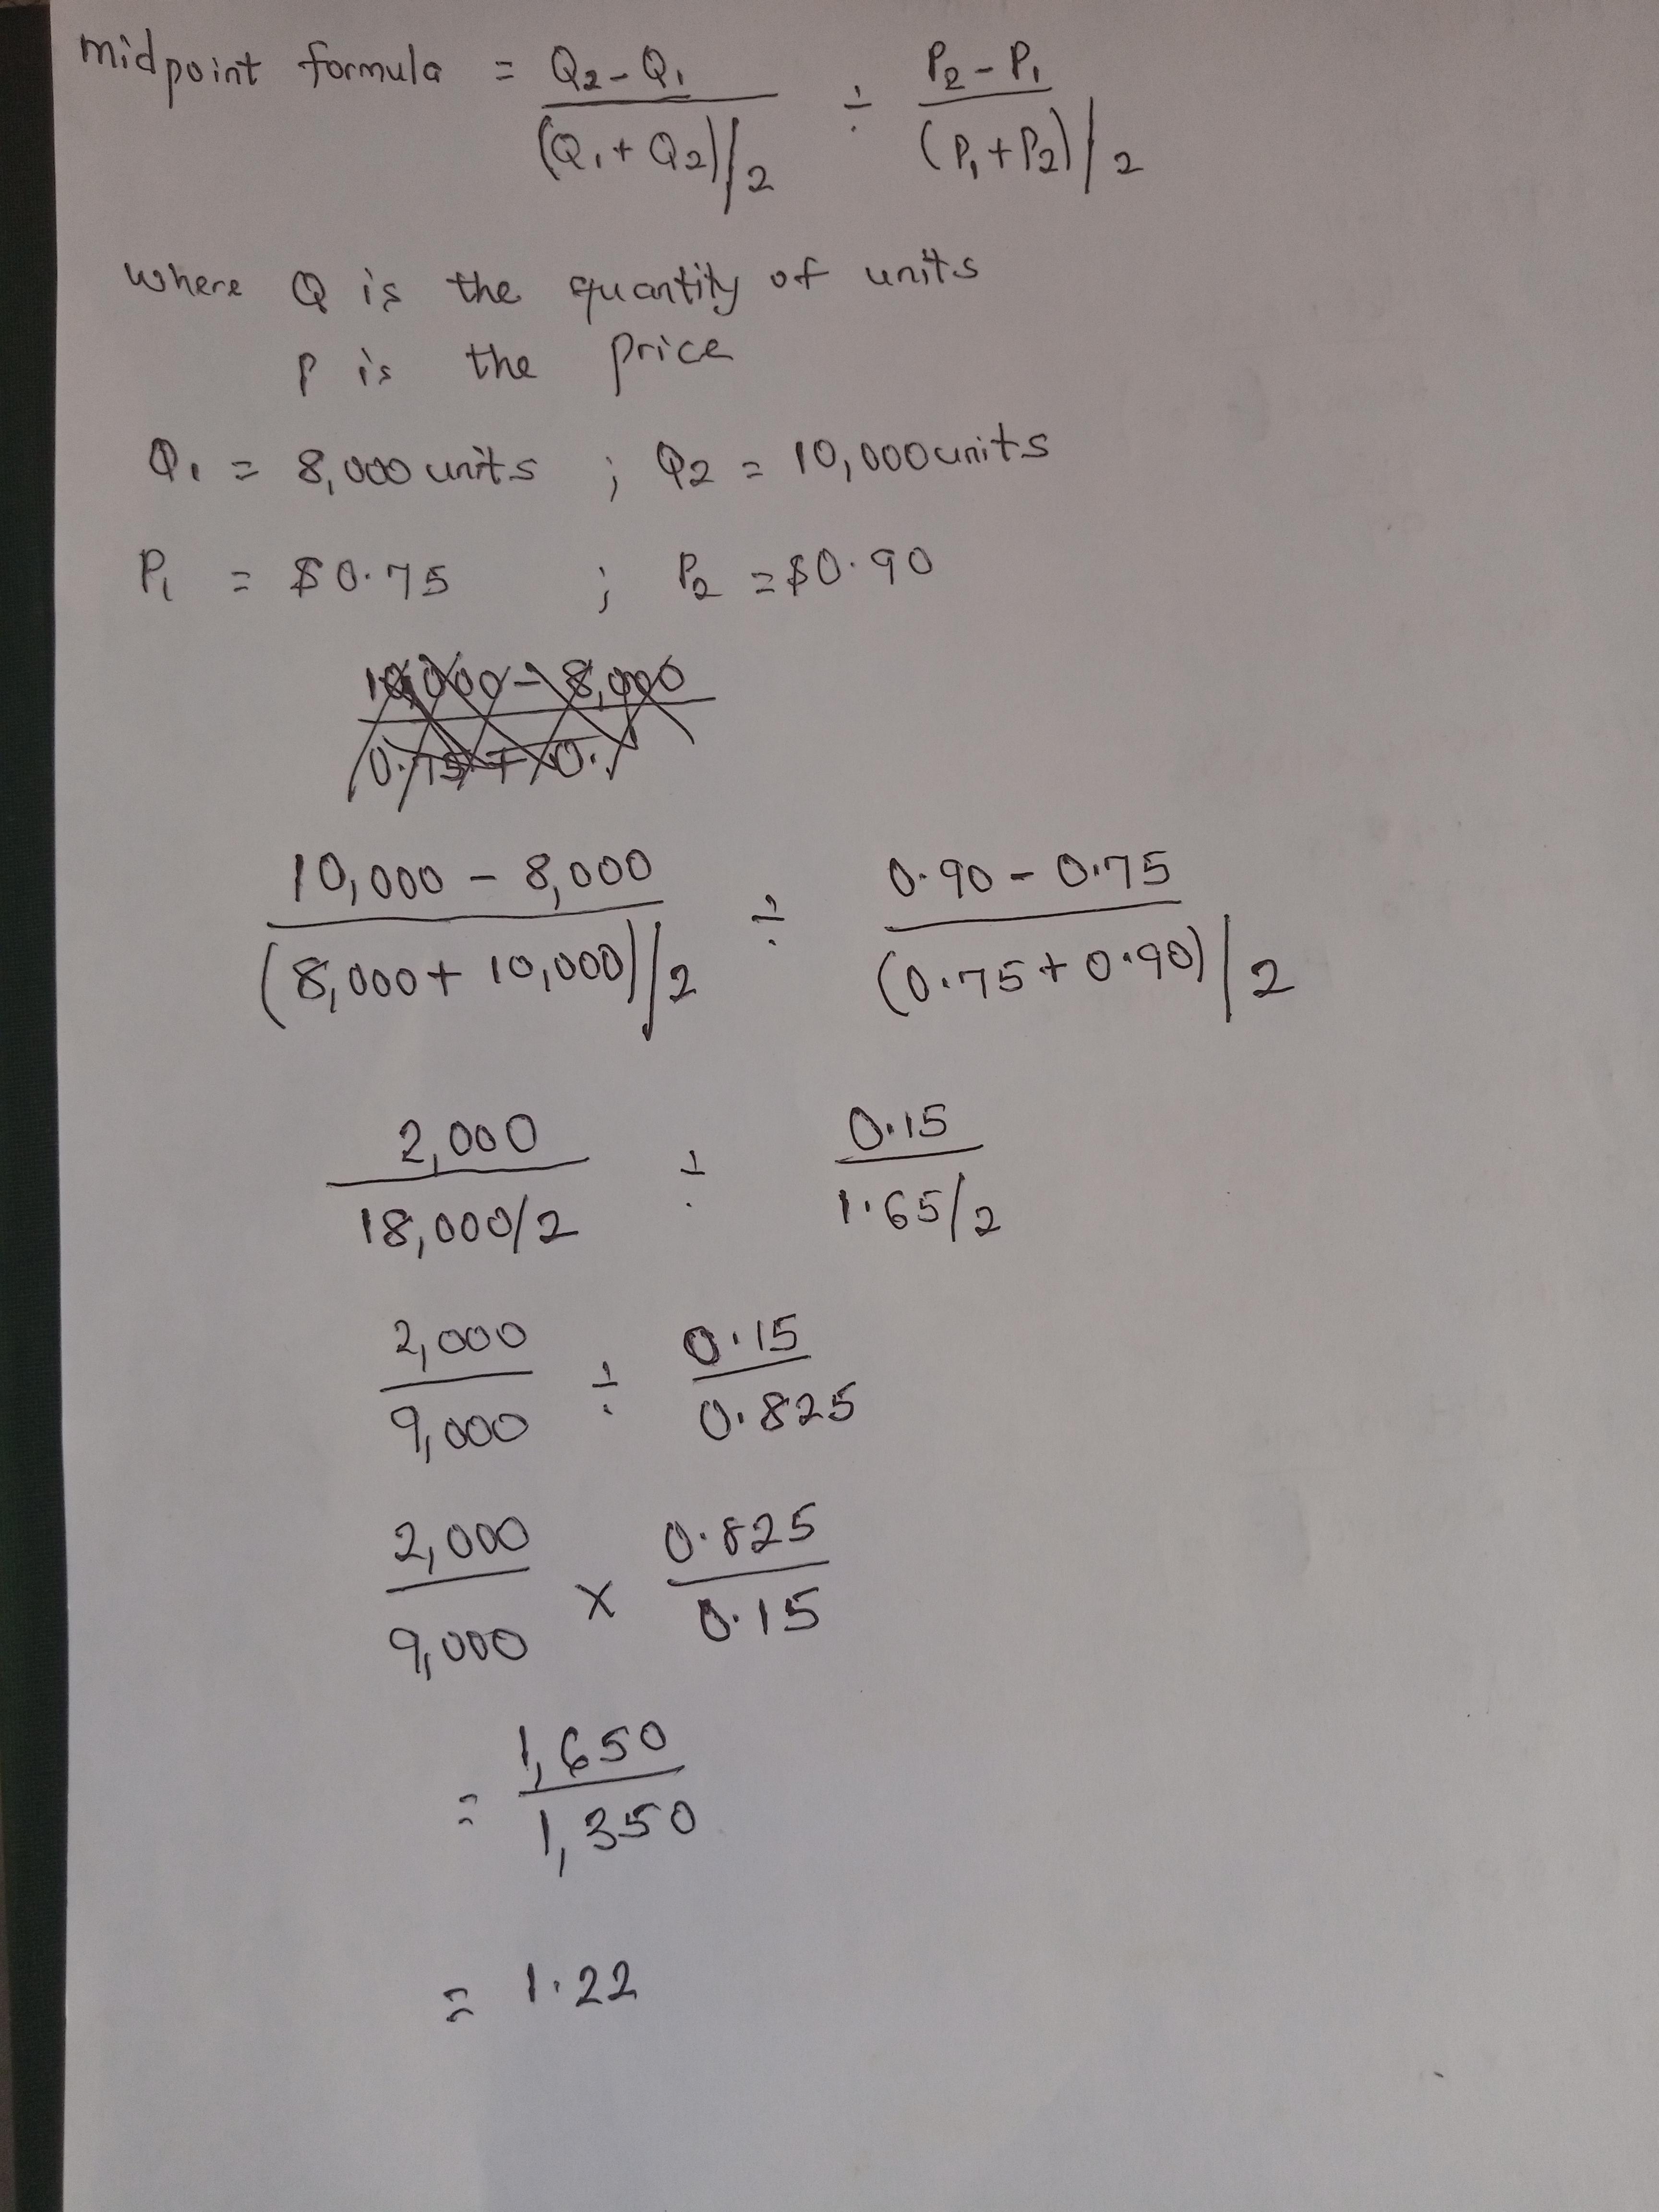 midpoint formula = Q2 - Q1 / (Q1 + Q2)/2 ÷ P2 - P1 / (P1 + P2)/2
where Q is the quantity of units
P is the price
Q1 = 8,000 units ; Q2 = 10,000 units
P1 = $0.75 ; P2 = $0.90
10,000 - 8,000
0.75 + 0.
10,000 - 8,000 / (8,000 + 10,000)/2 ÷ 0.90 - 0.75 / (0.75 + 0.90)/2
2,000 / 18,000/2 ÷ 0.15 / 1.65/2
2,000 / 9,000 ÷ 0.15 / 0.825
2,000 / 9,000 x 0.825 / 0.15
= 1,650 / 1,350
= 1.22